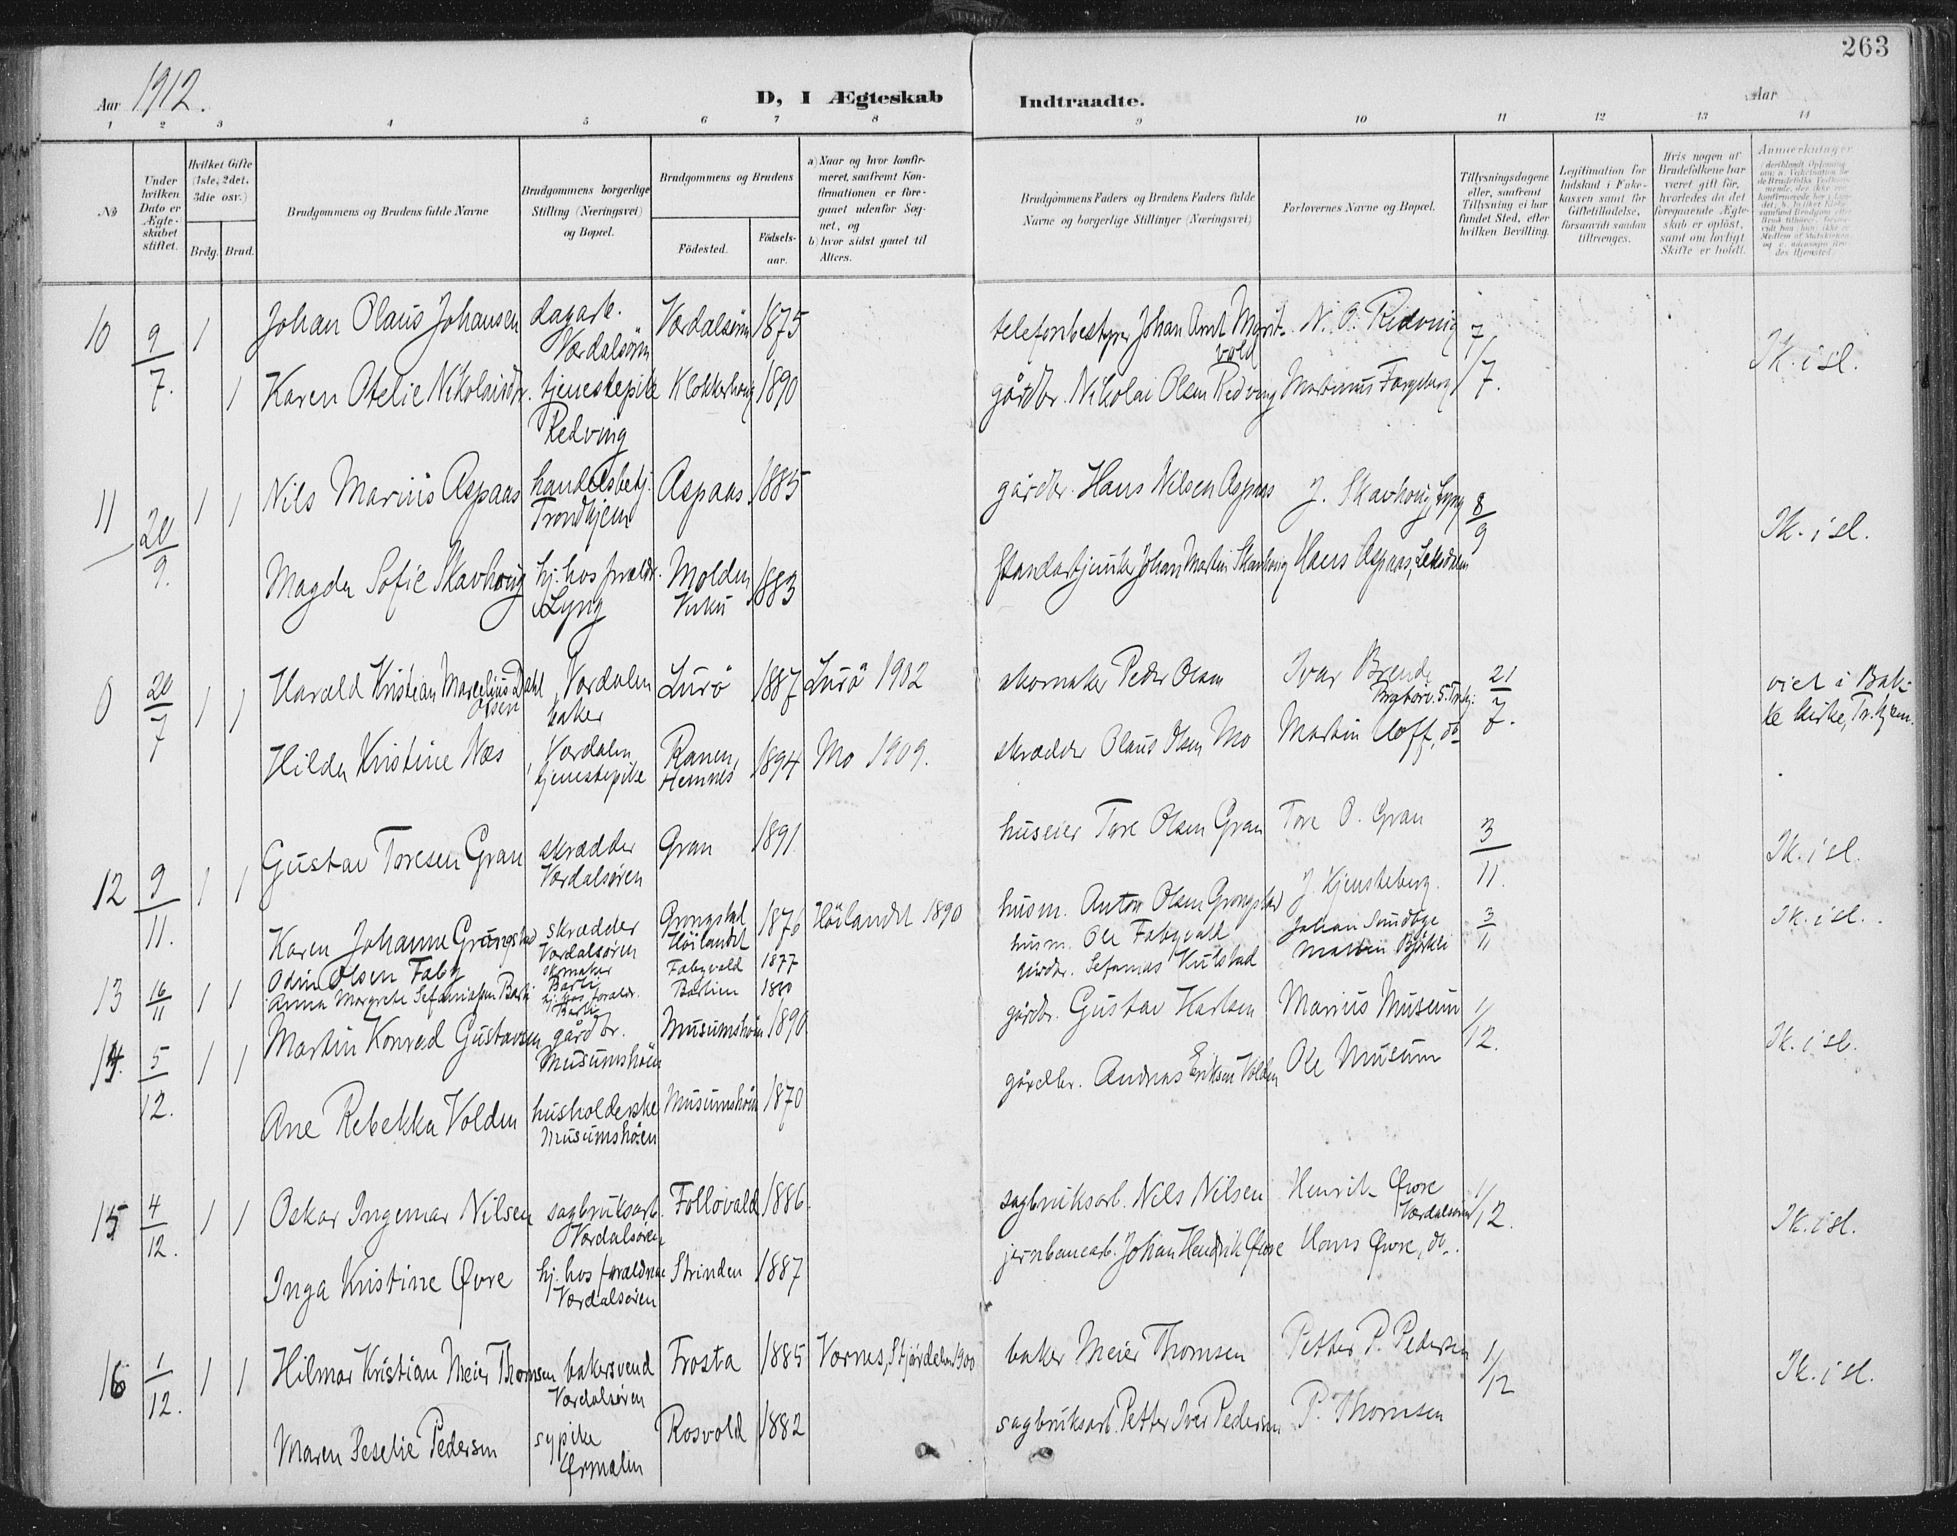 263
Aar 1912.
D, I Ægteskab Indtraadte.
Aar
1 2 3 4 5 6 7 8 9 10 11 12 13 14
No
Under hvilken Dato er Ægteskabet stiftet.
Hvilket Gifte (1ste, 2det, 3die osv.)
Brdg. Brud.
Brudgommens og Brudens fulde Navne
Brudgommens borgerlige Stilling (Næringsvei) og Bopæl.
Brudgommens og Brudens
Fødested.
Fødselsaar.
a) Naar og hvor konfirmeret, saafremt Konfirmationen er foregaaet udenfor Sognet, og
b) hvor sidst gaaet til Alters.
Brudgommens Faders og Brudens Faders fulde Navne og borgerlige Stillinger (Næringsvei)
Forlovernes Navne og Bopæl.
Tillysningsdagene eller, saafremt Tillysning ei har fundet Sted, efter hvilken Bevilling.
Legitimation for Indskud i Enkekassen samt for Giftetilladelse, forsaavidt saadan tiltrænges.
Hvis nogen af Brudefolkene har været gift før, hvorledes da det foregaaende Ægteskab er opløst, samt om lovligt Skifte er holdt.
Anmærkninger
10 9/7. 1 Johan Olaus Johansen dagarb. Værdalsøren Værdalsøren 1875 telefonbestyrer Johan Arnt Myrvold N. O. Redving 7/7. Ik. i sl.
1 Karen Otelie Nikolaisdr. tjenestepike Redving Klokkerhaug 1890 gårdbr. Nikolai Olsen Redving Martinus Færgeberg
11 20/9. 1 1 Nils Marius Aspaas handelsbetj. Trondhjem Aspaas 1885 gårdbr. Hans Nilsen Aspaas J. Skavhaug, Lyng 8/9 Ik. i sl.
Magda Sofie Skavhaug hj. hos forældr. Lyng Molden 1883 Standartjunker Johan Martin Skavhaug Hans Aspaas, Leksdalen
0 20/7 1 1 Harald Kristian Marcelius Dahl Olsen Værdalen baker Lurö 1887 Lurö 1902 skomaker Peder Olsen Ivar Brende 21/7. viet i Bakke kirke, Tr.hjem.
Hilda Kristine Næs Værdalen, tjenestepike Ranen, Hemnes 1894 Mo 1909. skrædder Olaus Olsen Mo Martin Hoff, do
12 9/11. 1 1 Gustav Toresen Gran skrædder Værdalsøren Gran 1891 huseier Tore Olsen Gran Tore O. Gran 3/11. Ik. i sl.
Karen Johanne Grongstad skrædder Værdalsøren Grongstad Höilandet 1876 Höilandet 1890 husm. Anton Olsen Grongstad J. Kjensteberg.
13 16/11 1 1 Odin Olsen Faby skomaker Barli Fabyvald 1877 husm. Ole Fabyvald Johan Smedbye 3/11 Ik. i sl.
Anna Margrete Sefaniasen Barli hj. hos foreldr. Barli Bartien 1880 gårdbr. Sefanias Kulstad Martin Bjørkli
14. 5/12. 1 1 Martin Konrad Gustavsen gårdbr. Musumshøen Musumshøen 1890 gårdbr. Gustav Karlsen Marius Museum 1/12. Ik. i sl.
Ane Rebekka Volden husholderske Musumshøen Musumshøen 1870 gårdbr. Andreas Eriksen Volden Ole Musum
15 4/12. 1 1 Oskar Ingemar Nilsen sagbruksarb. Værdalsøren Follovald 1886. sagbruksarb. Nils Nilsen Henrik Øvre Værdalsøren 1/12. Ik. i sl.
Inga Kristine Øvre hj. hos forældrene Værdalsøren Strinden 1887 jernbanearb. Johan Hendrik Øvre Hans Øvre, do.
16 1/12. 1 1 Hilmar Kristian Meier Thomsen bakersvend Værdalsøren Frosta 1885 Værnes, Stjørdalen 1900 baker Meier Thomsen Petter P. Pedersen 1/12 Ik. i sl.
Maren Peselie Pedersen sypike Ørmelen Rosvold 1882 sagbruksarb. Petter Iver Pedersen P. Thomsen